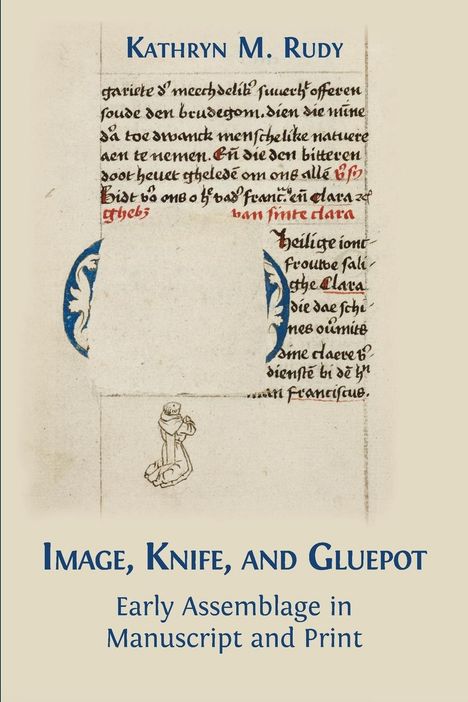 KATHRYN M. RUDY
gariete dᷣ meechdelikᷣ suuerhᷣ offeren
soude den brudegom. dien die mīne
dᷣa toe dwanck menschelike natuere
aen te nemen. Eñ die den bitteren
doot heuet gheledē om ons allē
Bidt vᷣo ons o hᷣ vadᷣ franc. eñ Clara
ghebᷣ van sinte clara
Heilige ionc-
frouwe sali-
ghe Clara
die dae schi-
nes oūmits
dine claere vᷣ-
dienstē bi dē hᷣn
Franciscus.
IMAGE, KNIFE, AND GLUEPOT
Early Assemblage in
Manuscript and Print